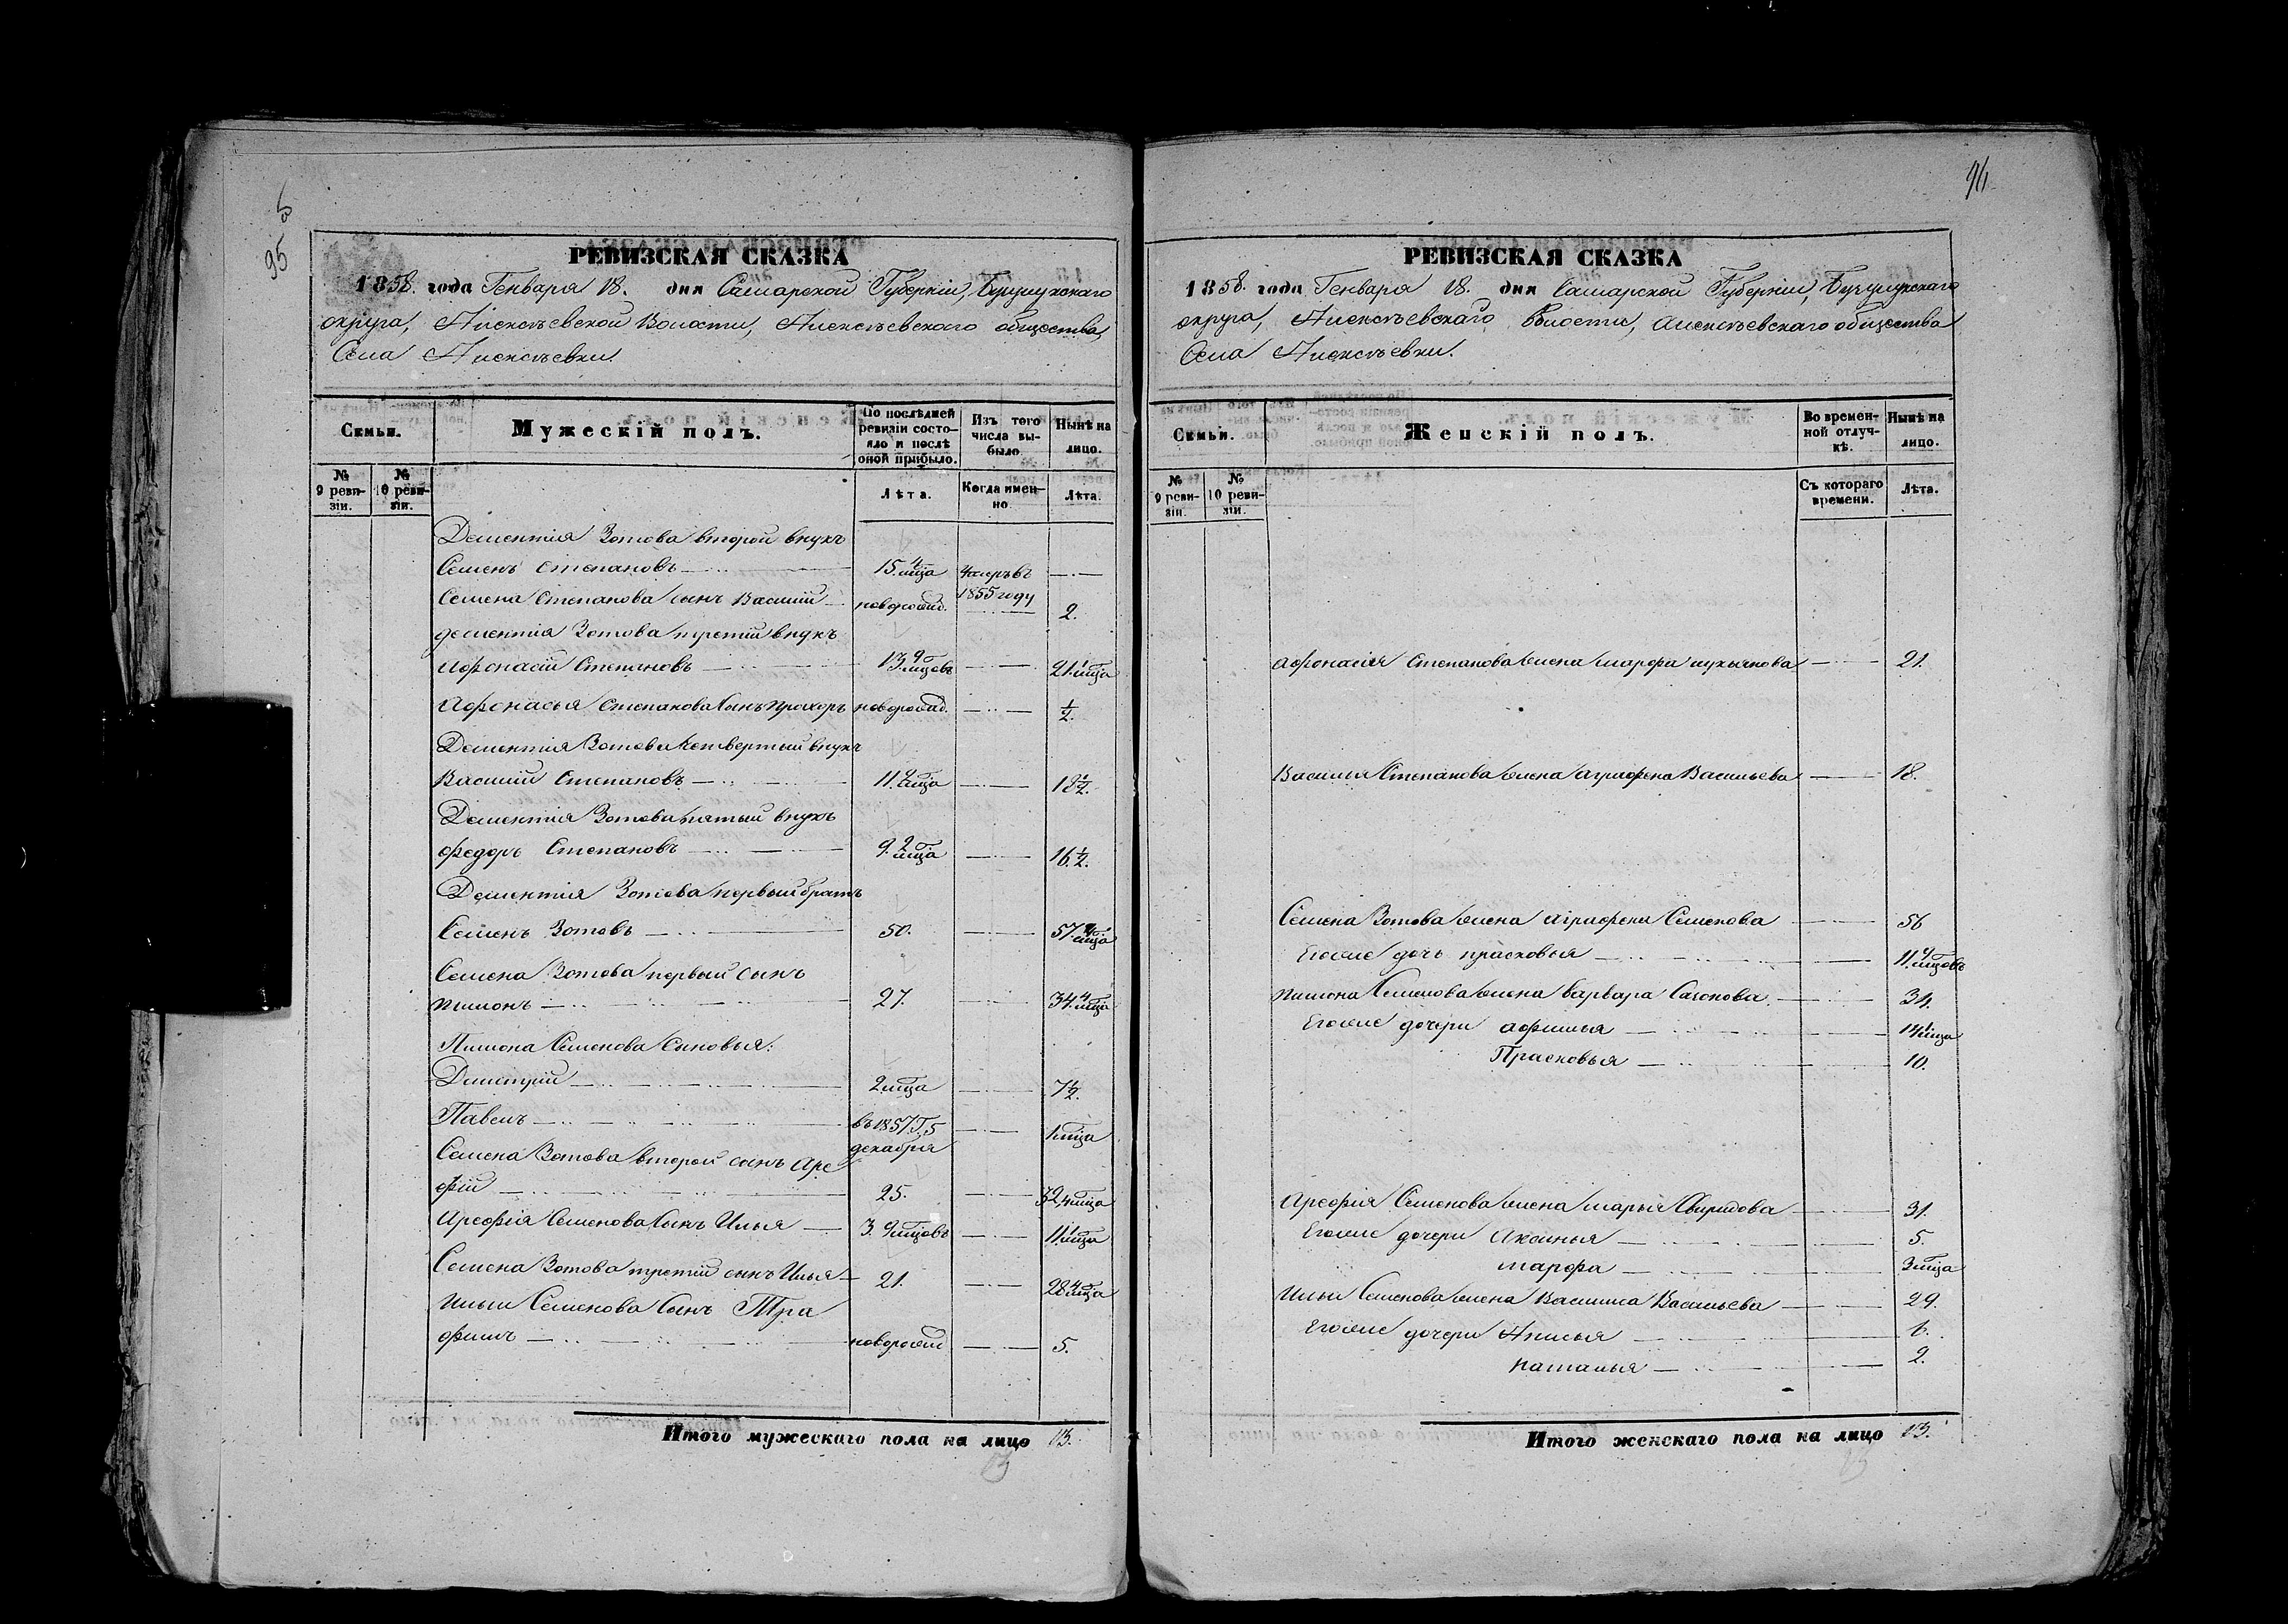 95
РЕВИЗСКАЯ СКАЗКА
1858. года Генваря 18. дня Самарской Губерніи, Бузулукскаго
округа, Алексѣевской Волости, Алексѣевскаго общества,
Села Алексѣевки.
Семьи.
Мужескій полъ.
По послѣдней ревизіи состояло и послѣ оной прибыло.
Изъ того числа выбыло.
Нынѣ на лицо.
№ 9 ревизіи.
№ 10 ревизіи.
Лѣта.
Когда именно.
Лѣта.
Дементія Зотова второй внукъ
Семенъ Степановъ 15. 4 мца умеръ въ 1855 году
Семена Степанова сынъ Василій новорожд. 2.
дементія Зотова третій внукъ
Афонасій Степановъ 13. 9 мцовъ 21. 1 мца
Афонасья Степанова сынъ Прохоръ новорожд. ½.
Дементія Зотова четвертый внукъ
Василій Степановъ 11. мца 18½.
Дементія Зотова пятый внукъ
Федоръ Степановъ 9. 2 мца 16½.
Дементія Зотова первый братъ
Семенъ Зотовъ 50. 57. мца
Семена Зотова первый сынъ
Пимонъ 27. 34. 4 мца
Пимона Семенова сыновья:
Дмитрій 2 мца 7½.
Павелъ въ 1857 г. 5 декабря 1 мца
Семена Зотова второй сынъ Аре
фій 25. 32. 4 мца
Арефія Семенова сынъ Илья 3. 9 мцовъ 11. 1 мца
Семена Зотова третій сынъ Илья 21. 28. 4 мца
Ильи Семенова сынъ Тра
фимъ новорожд 5.
Итого мужескаго пола на лицо 13.
РЕВИЗСКАЯ СКАЗКА
1858. года Генваря 18. дня Самарской Губерніи, Бузулукскаго
округа, Алексѣевскаго Волости, Алексѣевскаго общества
Села Алексѣевки.
Семьи.
Женскій полъ.
Во временной отлучкѣ.
Нынѣ на лицо.
№ 9 ревизіи.
№ 10 ревизіи.
Съ котораго времени.
Лѣта.
Афонасія Степанова жена Марфа Лукьянова 21.
Василія Степанова жена Аграфена Васильева 18.
Семена Зотова жена Аграфена Семенова 56
Егоже дочь Прасковья 11. 9 мцовъ
Пимона Семенова жена Варвара Сазонова 34.
Егоже дочери Афимья 14. 1 мца
Прасковья 10.
Арефія Семенова жена Марья Свиридова 31.
Егоже дочери Аксинья 5.
Марфа 3 мца
Ильи Семенова жена Василиса Васильева 29.
Егоже дочери Анисья 6.
Наталья 2.
Итого женскаго пола на лицо 13.